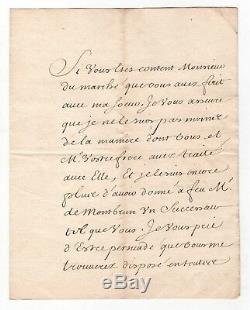 Si Vous Etes content Monsieur
du marché que vous avez fait
avec ma soeur. Je Vous assure
que je ne le suis pas moins
de la maniere dont vous et
Mr Vostre frere avez traité
avec Elle, Et je le suis encore
plus d'avoir donné a feu Mr
de Montbrun Vn Successeur
tel que Vous. Je Vous prie
d'Estre persuadé que vous me
trouverez disposé en toutes
ebay